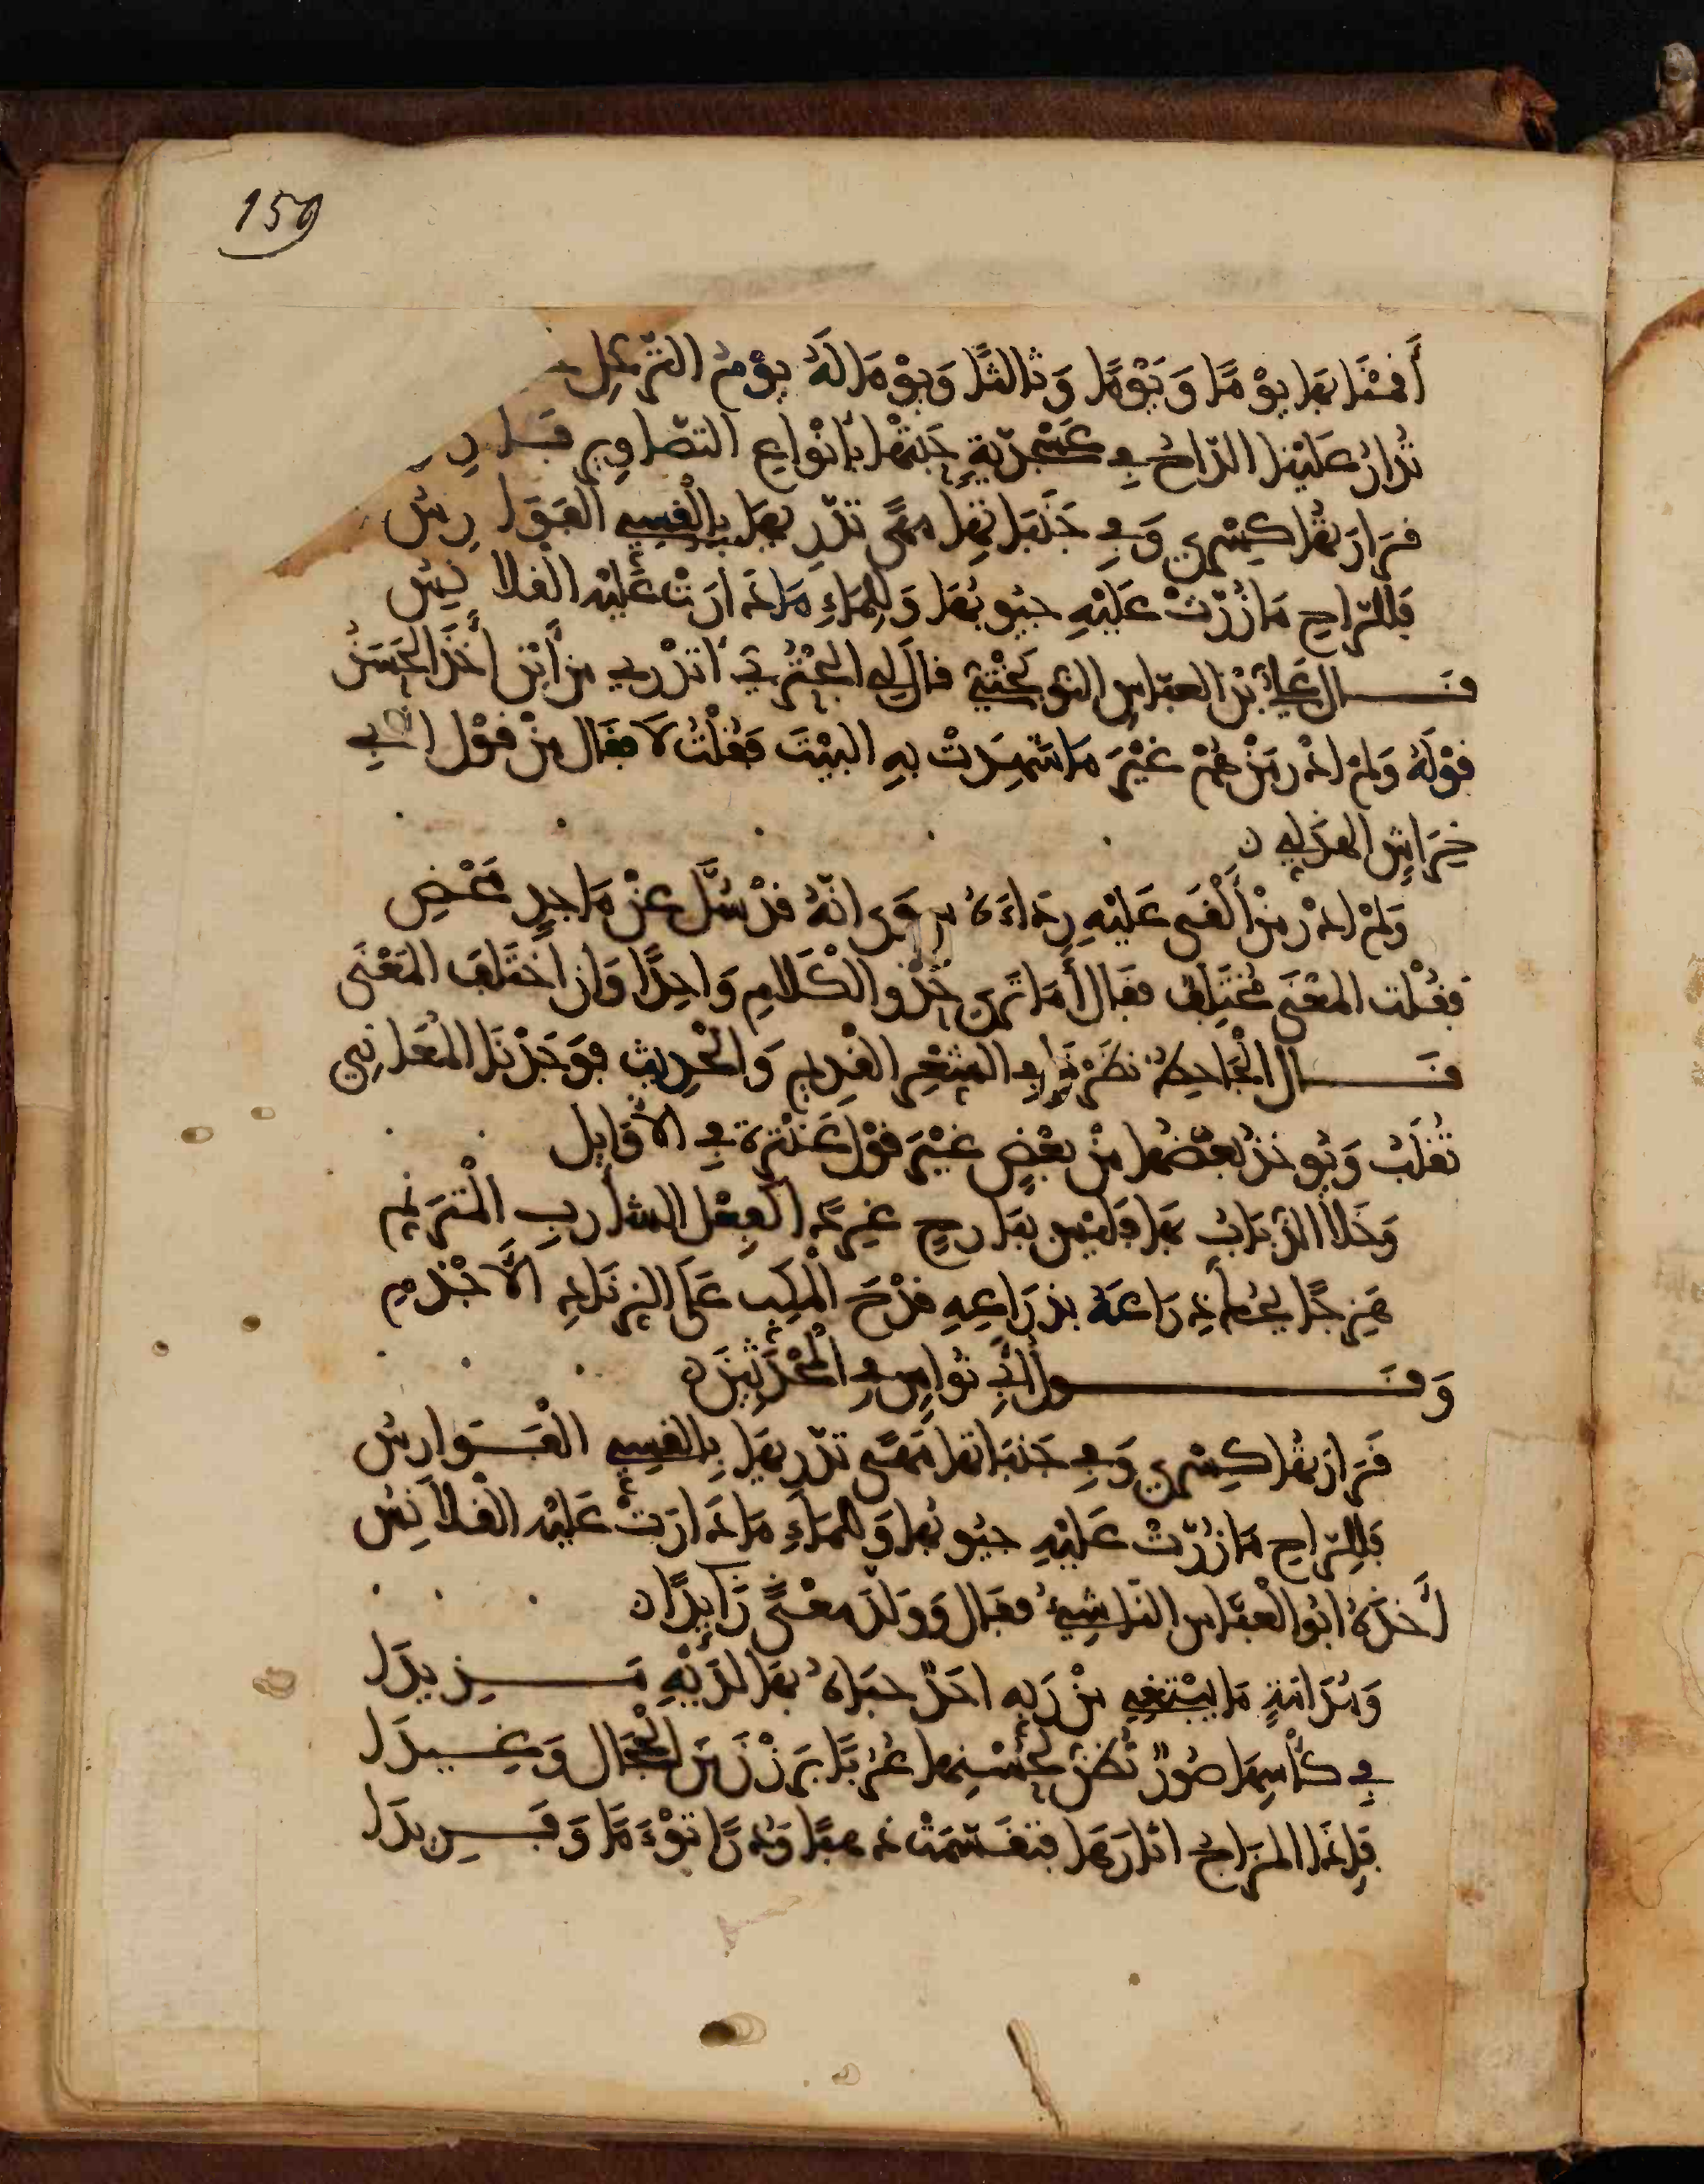 159
أَقَمْنَا بِهَا يَوْمًا وَيَوْمًا وَثَالِثًا وَيَوْمًا لَهُ يَوْمُ التَّرَحُّلِ
تُدَارُ عَلَيْنَا الرَّاحُ فِي عَسْجَدِيَّةٍ حَبَتْهَا بِأَنْوَاعِ التَّصَاوِيرِ فَارِ
قَرَارَتُهَا كِسْرَى وَفِي جَنَبَاتِهَا مَهًى تَدَّرِيهَا بِالْقِسِيِّ الْفَوَارِسُ
فَلِلرَّاحِ مَا زُرَّتْ عَلَيْهِ جُيُوبُهَا وَلِلْمَاءِ مَا دَارَتْ عَلَيْهِ الْقَلَانِسُ
قَالَ عَلِيُّ بْنُ الْعَبَّاسِ النَّوْبَخْتِيُّ قَالَ لِي الْبُحْتُرِيُّ أَتَدْرِي مِنْ أَيْنَ أَخَذَ الْحَسَنُ
قَوْلَهُ وَلَمْ أَدْرِ مَنْ هُمْ غَيْرَ مَا شَهِدَتْ بِهِ الْبَيْتَ فَقُلْتُ لَا فَقَالَ مِنْ قَوْلِ أَبِي
خِرَاشٍ الْهُذَلِي
وَلَمْ أَدْرِ مَنْ أَلْقَى عَلَيْهِ رِدَاءَهُ سِوَى أَنَّهُ قَدْ سُلَّ عَنْ مَاجِدٍ مَحْضِ
فَقُلْتُ الْمَعْنَى مُخْتَلِفٌ فَقَالَ أَمَا تَرَى حَذْوَ الْكَلَامِ وَاحِدًا وَإِنِ اخْتَلَفَ الْمَعْنَى
قَالَ الْجَاحِظُ نَظَرْنَا فِي الشِّعْرِ الْقَدِيمِ وَالْحَدِيثِ فَوَجَدْنَا الْمَعَانِي
تُقْلَبُ وَيُوخَذُ بَعْضُهَا مِنْ بَعْضٍ غَيْرَ قَوْلِ عَنْتَرَةَ فِي الْأَوَايِلِ
وَخَلَا الذُّبَابُ بِهَا فَلَيْسَ بِبَارِحٍ غَرِدًا كَفِعْلِ الشَّارِبِ الْمُتَرَنِّمِ
هَزِجًا يَحُكُّ ذِرَاعَهُ بِذِرَاعِهِ قَدْحَ الْمُكِبِّ عَلَى الزِّنَادِ الْأَجْذَمِ
وَقَوْلُ أَبِي نُوَاسٍ فِي الْمُحْدَثِينَ
قَرَارَتُهَا كِسْرَى وَفِي جَنَبَاتِهَا مَهًى تَدَّرِيهَا بِالْقِسِيِّ الْفَوَارِسُ
فَلِلرَّاحِ مَا زُرَّتْ عَلَيْهِ جُيُوبُهَا وَلِلْمَاءِ مَا دَارَتْ عَلَيْهِ الْقَلَانِسُ
أَخَذَهُ أَبُو الْعَبَّاسِ النَّاشِيءُ فَقَالَ وَوَلَّدَ مَعْنًى زَايِدًا
وَمُدَامَةٍ مَا يَبْتَغِي مِنْ رَبِّهِ أَحَدٌ حَبَاهُ بِهَا لَدَيْهِ مَزِيدَا
فِي كَأْسِهَا صُوَرٌ تُظَنُّ لِحُسْنِهَا عُرُبًا بَرَزْنَ مِنَ الْحِجَالِ وَغِيدَا
فَإِذَا الْمِزَاجُ أَثَارَهَا فَتَقَسَّمَتْ ذَهَبًا وَدُرًّا تَوْءَمًا وَفَرِيدَا